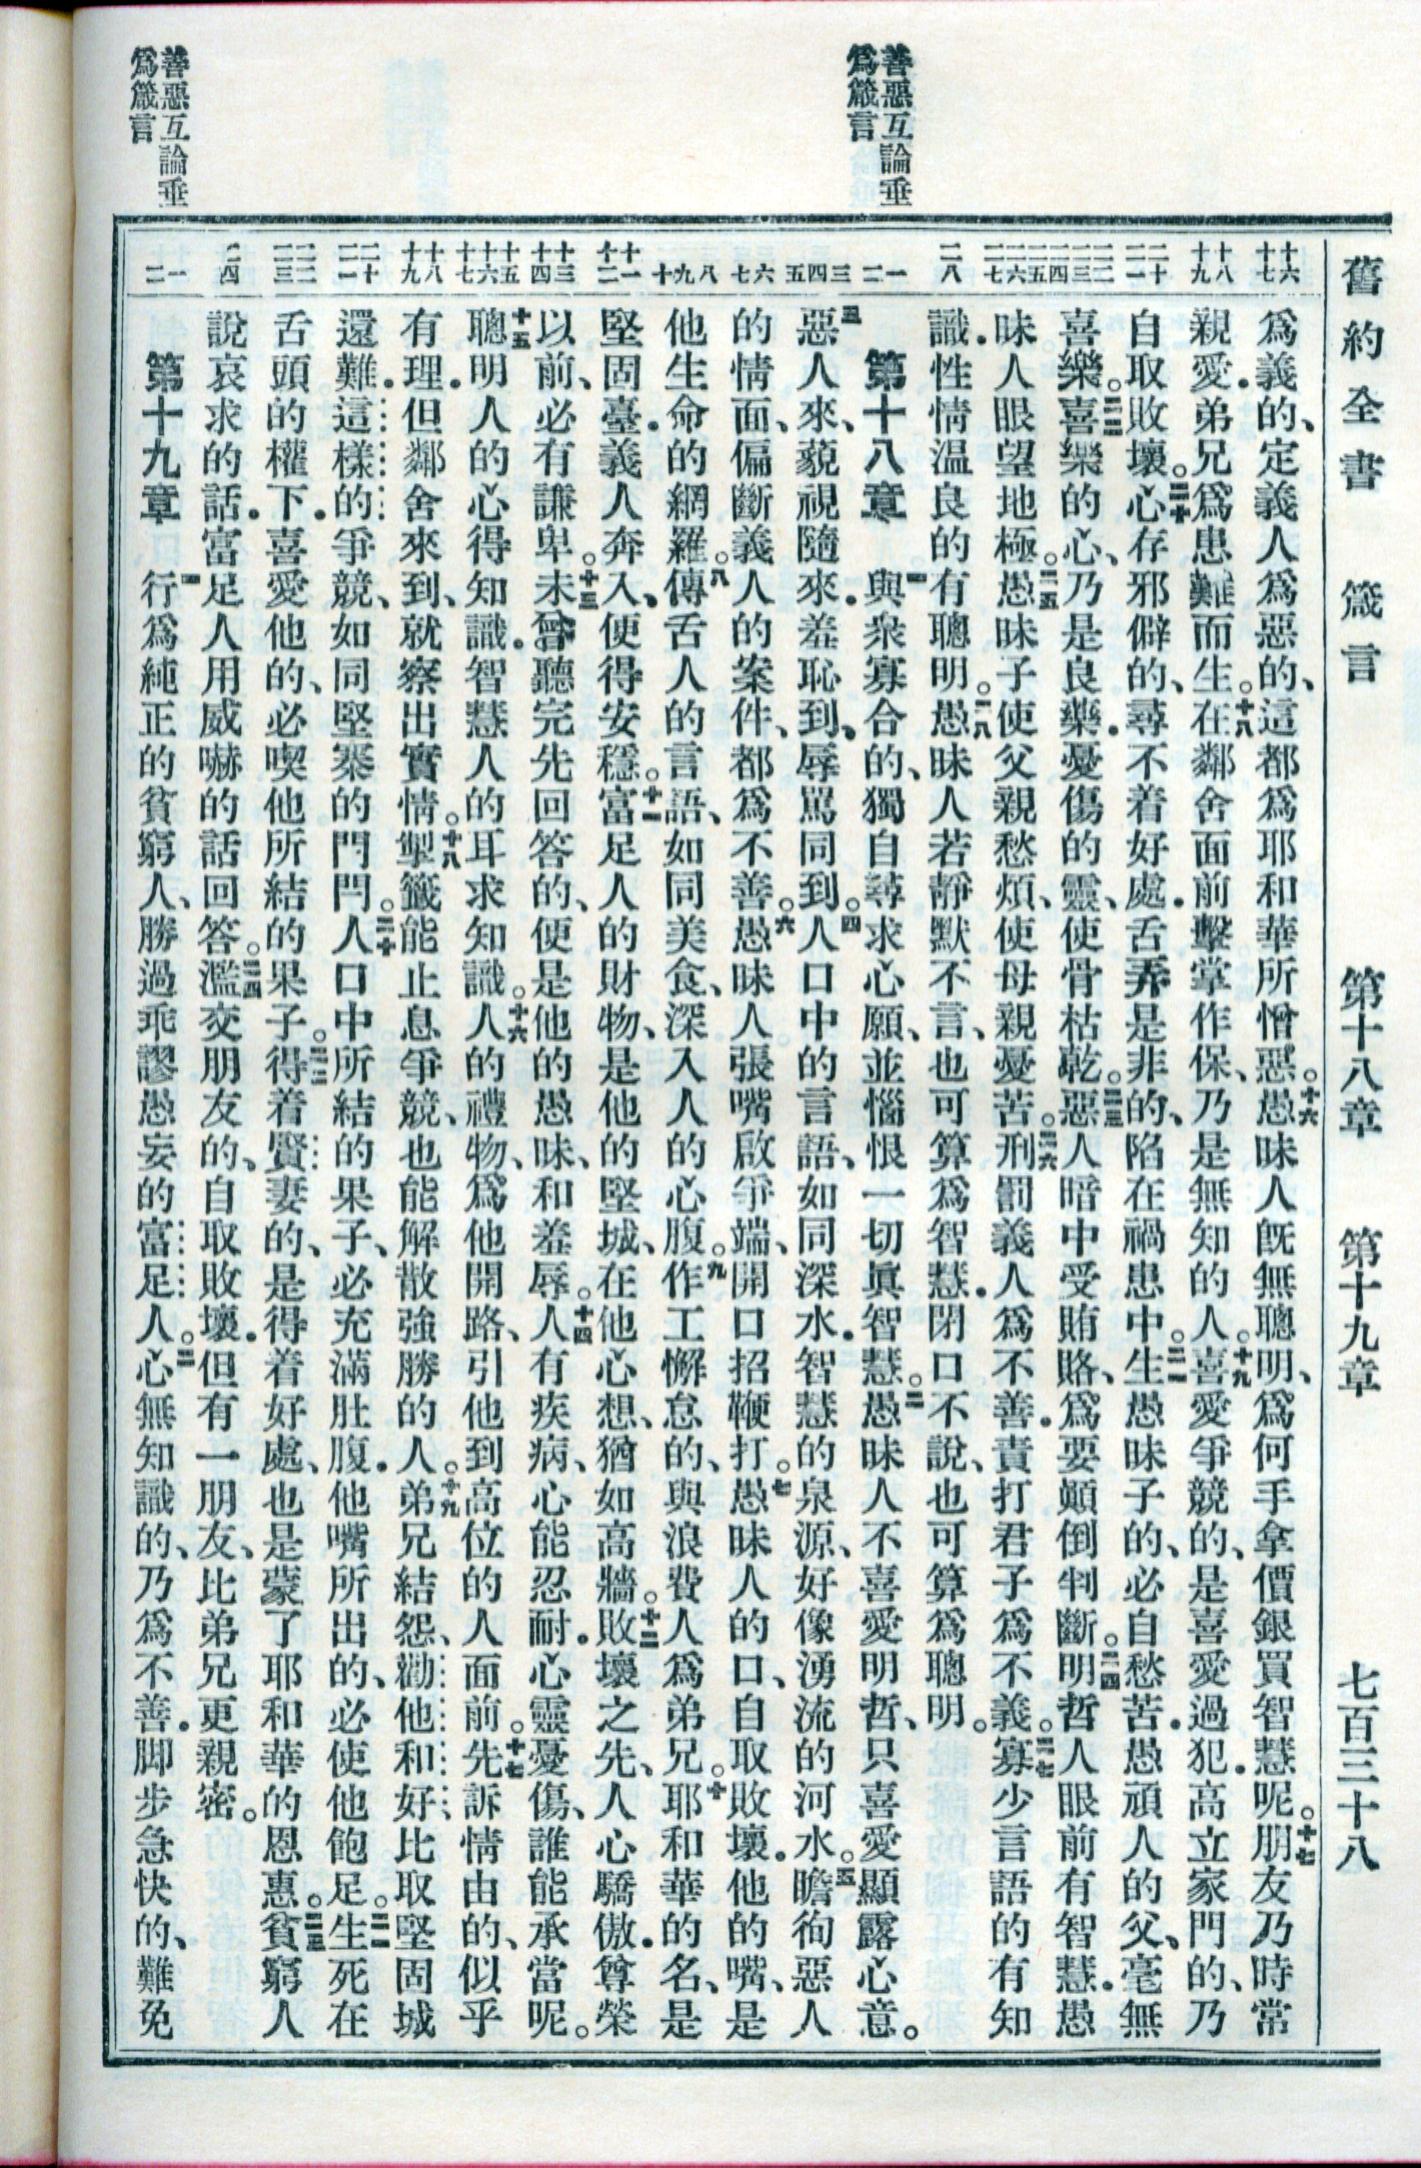 舊約全書　箴言　第十八章　第十九章　七百三十八
善惡互論垂
爲箴言
善惡互論垂
爲箴言
十六
十七
十八
十九
二十
二一
二二
二三
二四
二五
二六
二七
二八
一
二
三
四
五
六
七
八
九
十
十一
十二
十三
十四
十五
十六
十七
十八
十九
二十
二一
二二
二三
二四
一
二
爲義的、定義人爲惡的、這都爲耶和華所憎惡。十六愚昧人旣無聰明、爲何手拿價銀買智慧呢。十七朋友乃時常
親愛．弟兄爲患難而生。十八在鄰舍面前擊掌作保、乃是無知的人。十九喜愛爭競的、是喜愛過犯．高立家門的、乃
自取敗壞。二十心存邪僻的、尋不着好處．舌弄是非的、陷在禍患中。二一生愚昧子的、必自愁苦．愚頑人的父、毫無
喜樂。二二喜樂的心、乃是良藥．憂傷的靈、使骨枯乾。二三惡人暗中受賄賂、爲要顚倒判斷。二四明哲人眼前有智慧．愚
昧人眼望地極。二五愚昧子使父親愁煩、使母親憂苦。二六刑罰義人爲不善．責打君子爲不義。二七寡少言語的有知
識．性情温良的有聰明。二八愚昧人若靜默不言、也可算爲智慧．閉口不說、也可算爲聰明。
第十八章　一與衆寡合的、獨自尋求心願、並惱恨一切眞智慧。二愚昧人不喜愛明哲、只喜愛顯露心意。
三惡人來、藐視隨來．羞恥到、辱罵同到。四人口中的言語、如同深水．智慧的泉源、好像湧流的河水。五瞻徇惡人
的情面、偏斷義人的案件、都爲不善。六愚昧人張嘴啟爭端、開口招鞭打。七愚昧人的口、自取敗壞．他的嘴、是
他生命的網羅。八傳舌人的言語、如同美食、深入人的心腹。九作工懈怠的、與浪費人爲弟兄。十耶和華的名、是
堅固臺．義人奔入、便得安穩。十一富足人的財物、是他的堅城、在他心想、猶如高牆。十二敗壞之先、人心驕傲．尊榮
以前、必有謙卑。十三未曾聽完先回答的、便是他的愚昧、和羞辱。十四人有疾病、心能忍耐．心靈憂傷、誰能承當呢。
十五聰明人的心得知識．智慧人的耳求知識。十六人的禮物、爲他開路、引他到高位的人面前。十七先訴情由的、似乎
有理．但鄰舍來到、就察出實情。十八掣籤能止息爭競、也能解散強勝的人。十九弟兄結怨、勸他和好、比取堅固城
還難．這樣的爭競、如同堅寨的門閂。二十人口中所結的果子、必充滿肚腹．他嘴所出的、必使他飽足。二一生死在
舌頭的權下．喜愛他的、必喫他所結的果子。二二得着賢妻的、是得着好處、也是蒙了耶和華的恩惠。二三貧窮人
說哀求的話．富足人用威嚇的話回答。二四濫交朋友的、自取敗壞．但有一朋友、比弟兄更親密。
第十九章　一行爲純正的貧窮人、勝過乖謬愚妄的富足人。二心無知識的、乃爲不善．脚步急快的、難免